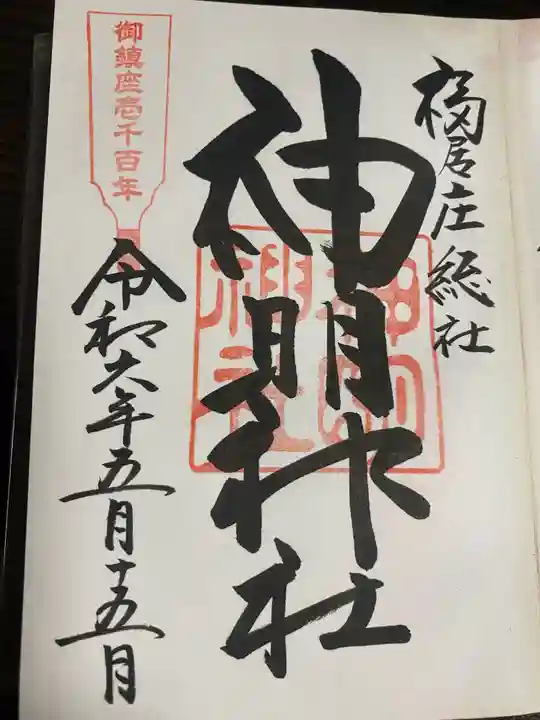 福居庄総社
神明神社
御鎮座壱千百年
令和六年五月十五月